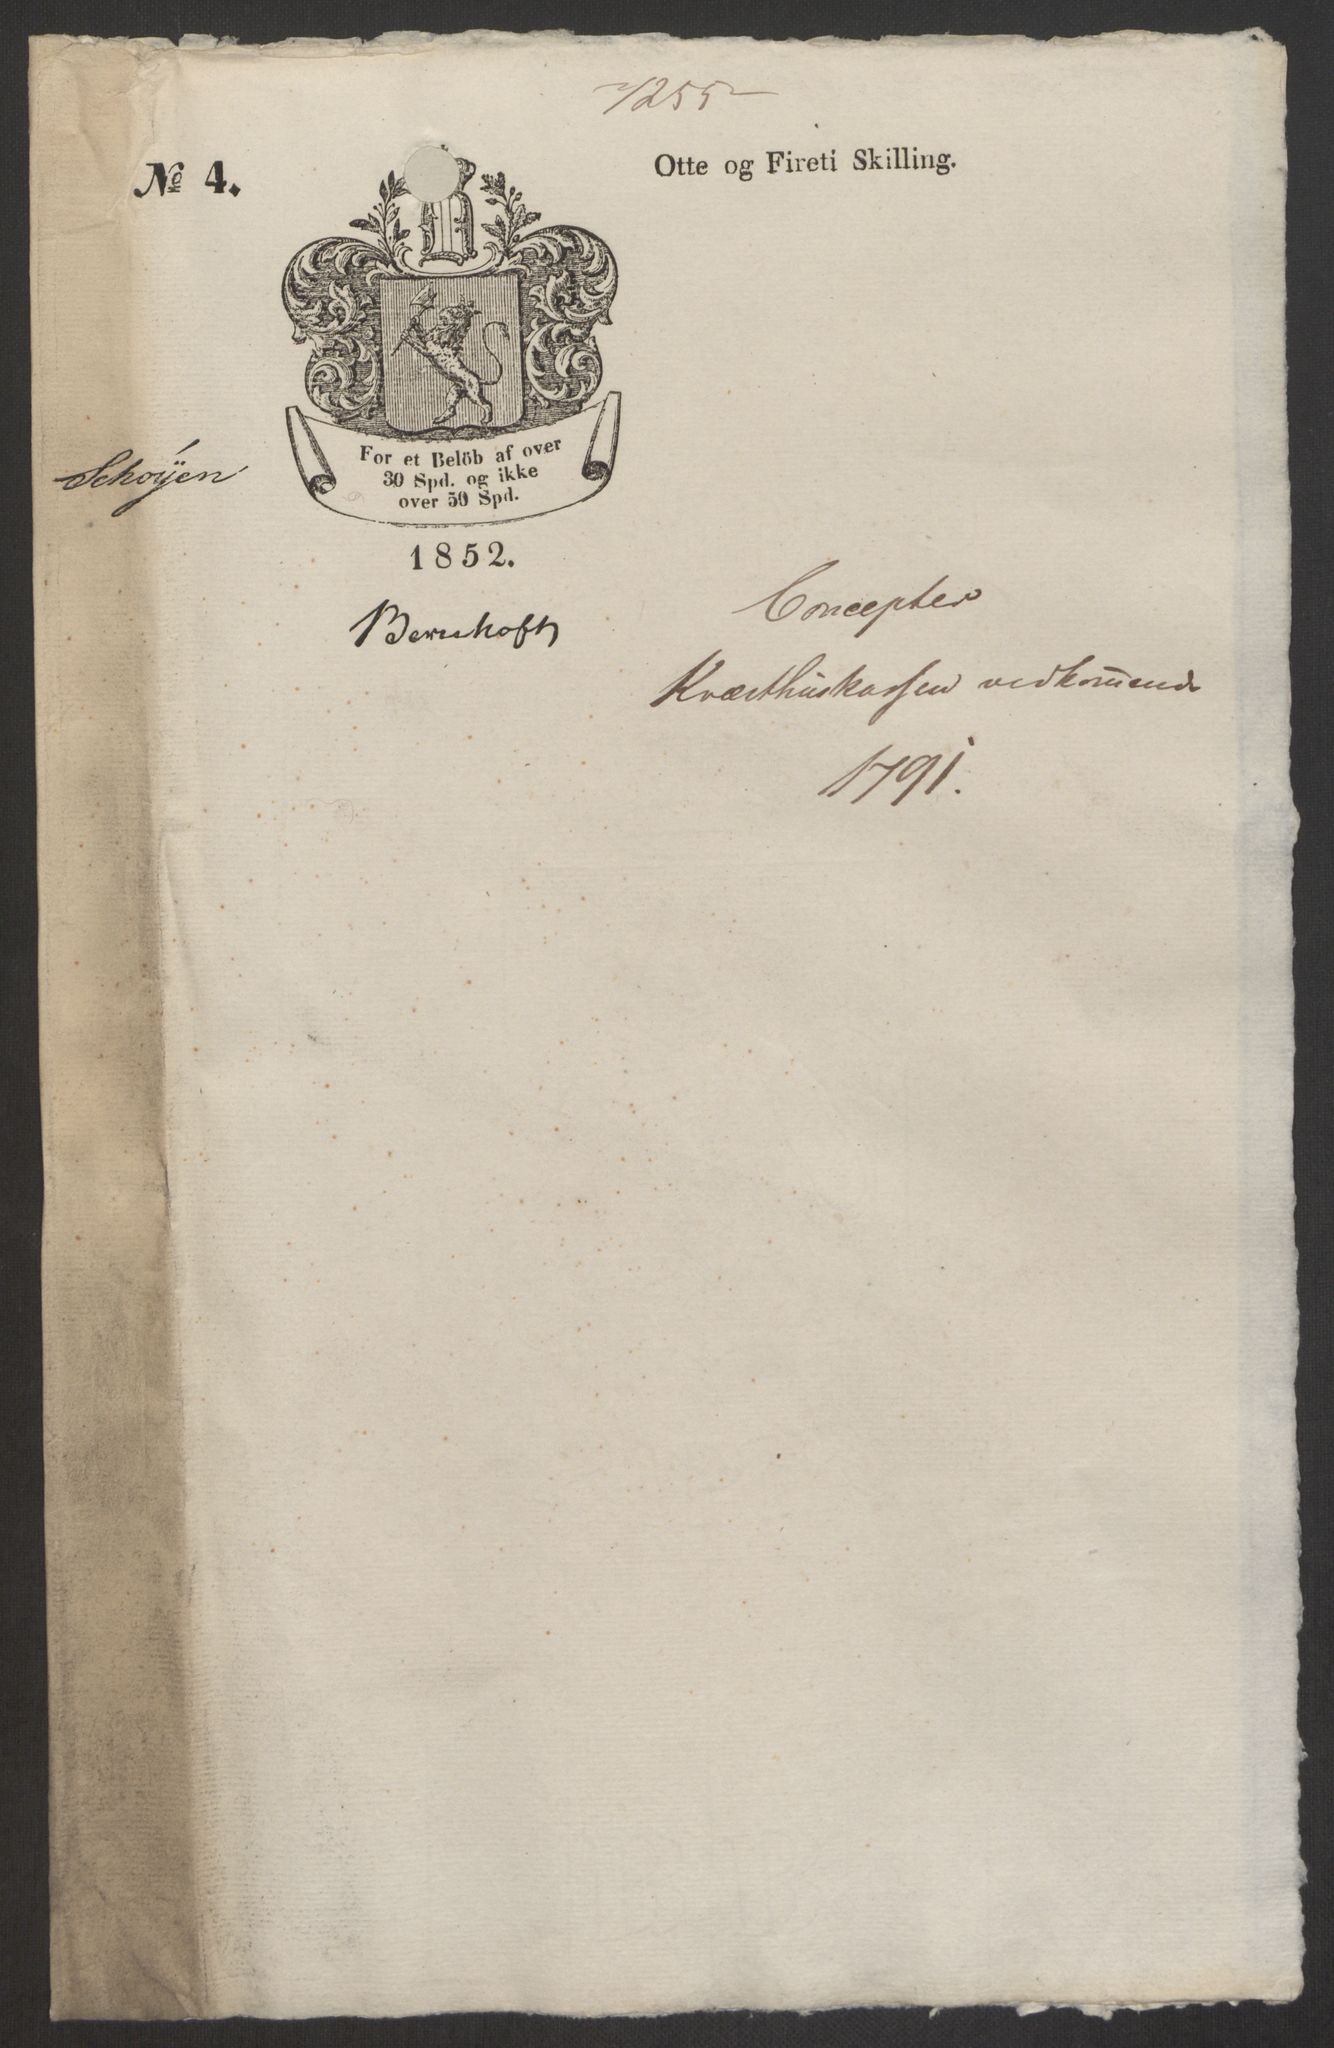 1255
No 4.
Otte og Fireti Skilling.
For et Belöb af over
30 Spd. og ikke
over 50 Spd.
Schøyen
1852.
Concepter
Kvæsthuskassen vedkommende
1791.